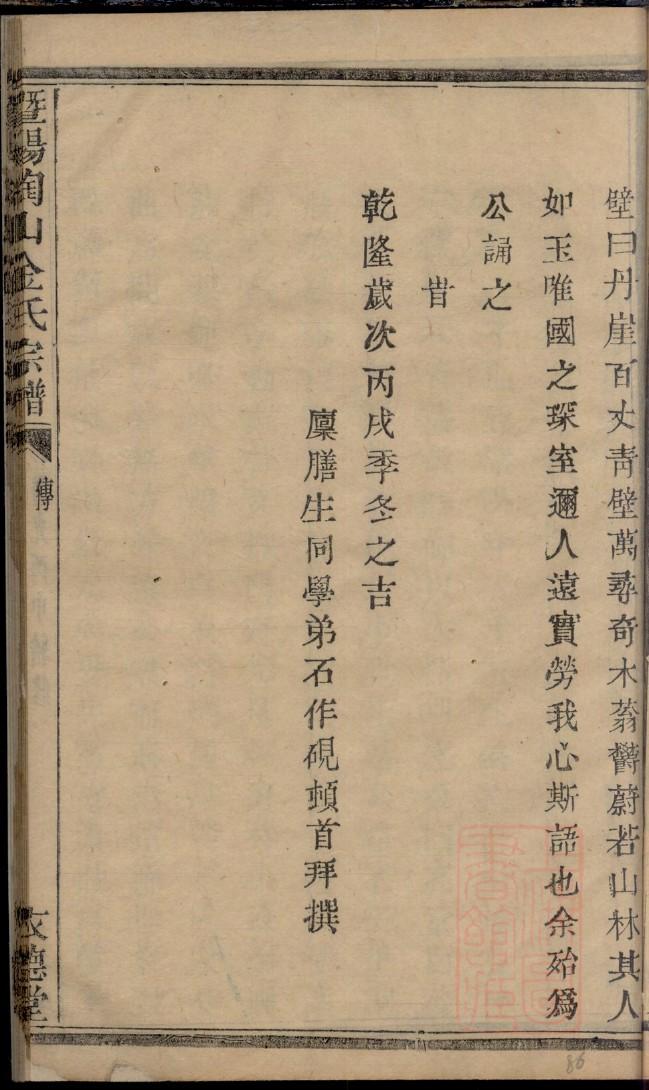 壁曰丹崖百丈靑壁萬尋奇木蓊欝蔚若山林其人
如玉唯國之琛室邇人遠實勞我心斯語也余殆爲
公誦之
旹
乾隆歲次丙戌季冬之吉
廩膳生同學弟石作硯頓首拜撰
暨陽陶山金氏宗譜
傳
文德堂
86